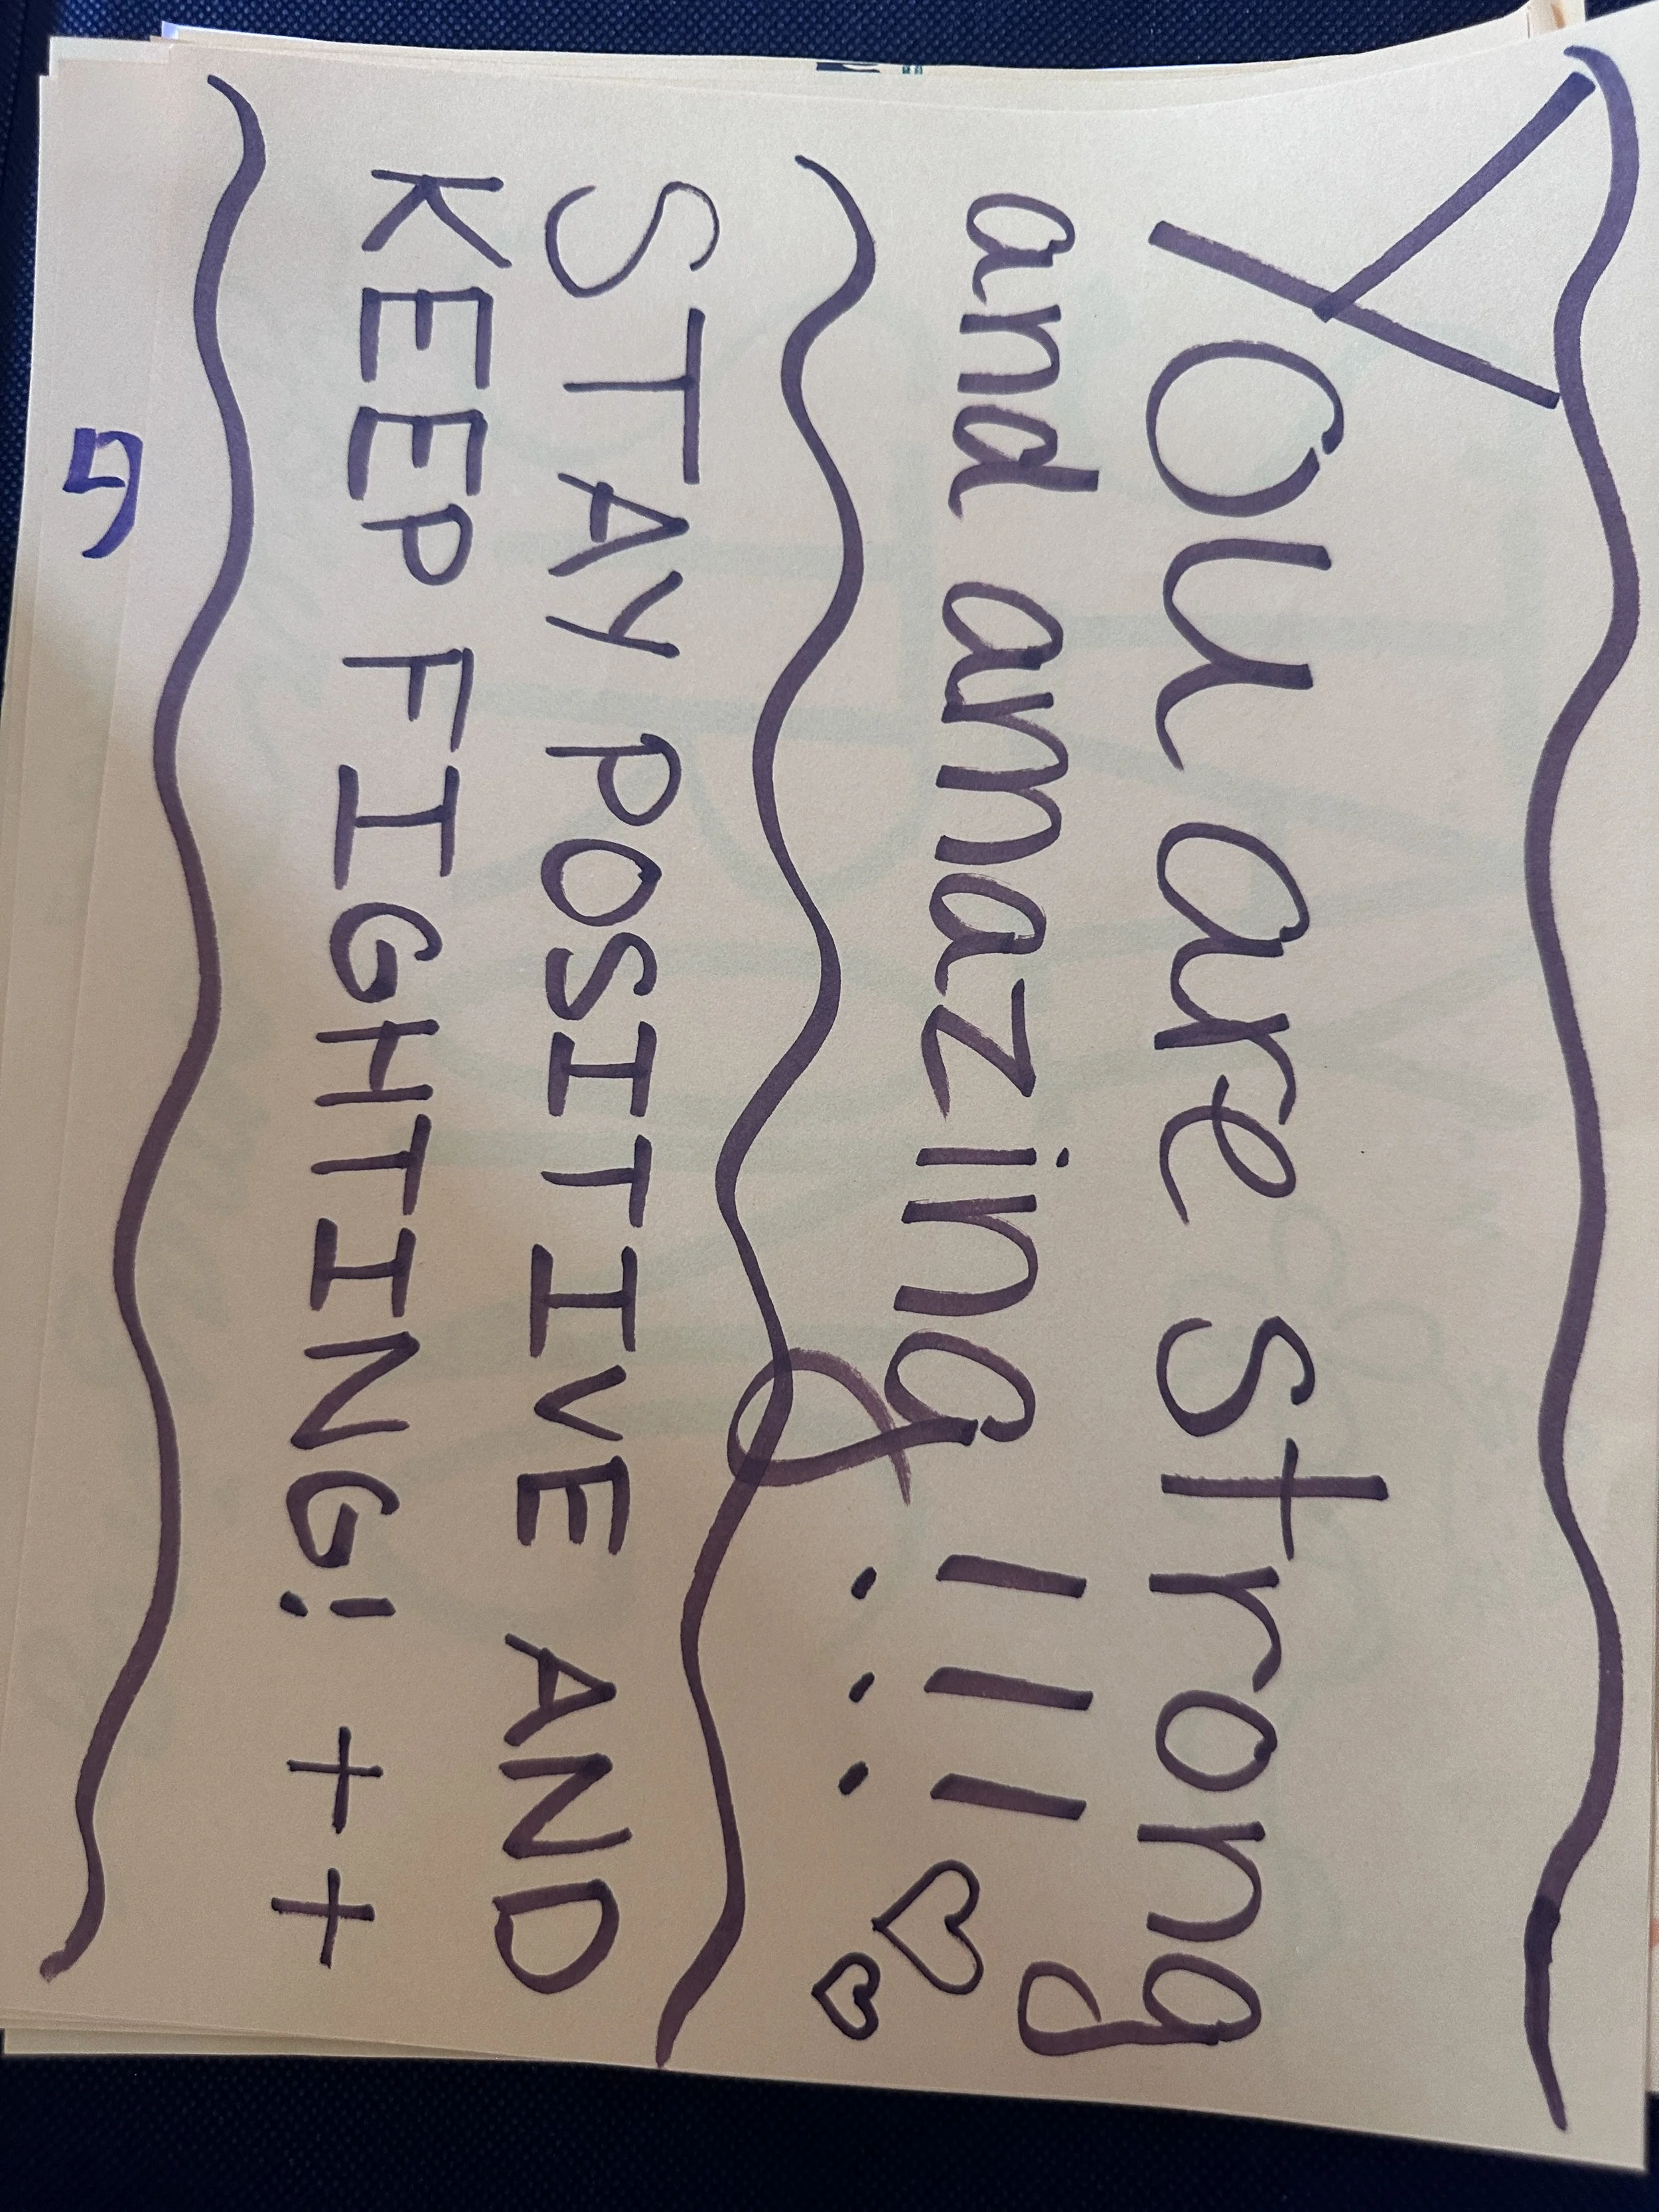 You are strong
and amazing !!! ♡♡
STAY POSITIVE AND
KEEP FIGHTING! ++
5